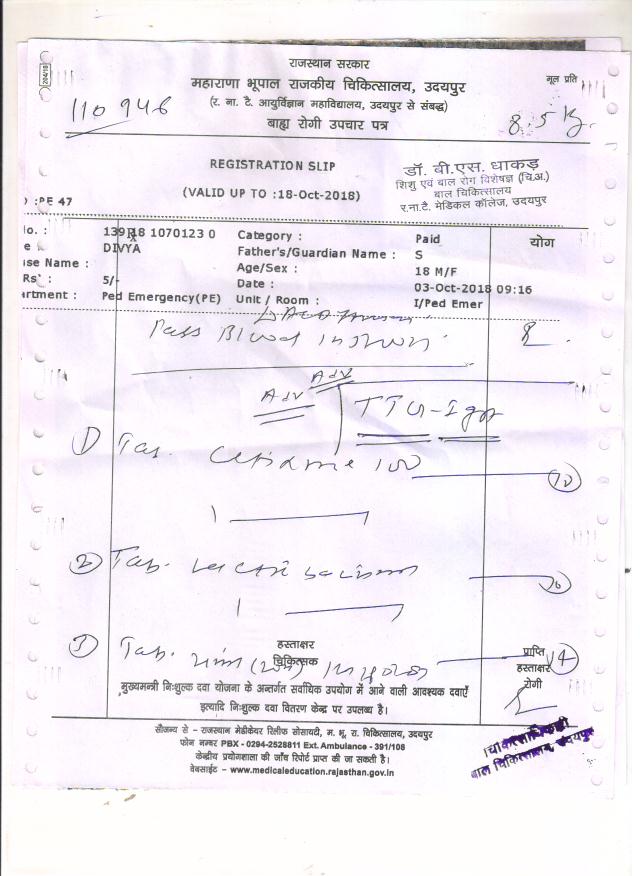 204/18
राजस्थान सरकार
महाराणा भूपाल राजकीय चिकित्सालय, उदयपुर
मूल प्रति
(र. ना. टै. आयुर्विज्ञान महाविद्यालय, उदयपुर से संबद्ध)
110946
बाह्य रोगी उपचार पत्र
8.5 Kg.
REGISTRATION SLIP
डॉ. बी.एस. धाकड़
शिशु एवं बाल रोग विशेषज्ञ (चि.अ.)
(VALID UP TO :18-Oct-2018)
बाल चिकित्सालय
र.ना.टै. मेडिकल कॉलेज, उदयपुर
:PE 47
lo. : 18 1070123 0 Category : Paid योग
e DIVYA Father's/Guardian Name : S
ise Name : Age/Sex : 18 M/F
Rs : 5/- Date : 03-Oct-2018 09:16
irtment : Ped Emergency(PE) Unit / Room : I/Ped Emer
Pass Blood in
Adv
Adv TTG-IgA
1) Tab. 100 10
1
2) Tab.
1
3) Tab. 14
हस्ताक्षर
चिकित्सक
प्राप्ति
हस्ताक्षर
रोगी
मुख्यमन्त्री निःशुल्क दवा योजना के अन्तर्गत सर्वाधिक उपयोग में आने वाली आवश्यक दवाएँ
इत्यादि निःशुल्क दवा वितरण केन्द्र पर उपलब्ध है।
सौजन्य से - राजस्थान मेडीकेयर रिलीफ सोसायटी, म. भू. रा. चिकित्सालय, उदयपुर
फोन नम्बर PBX - 0294-2528811 Ext. Ambulance - 391/108
केन्द्रीय प्रयोगशाला की जाँच रिपोर्ट प्राप्त की जा सकती है।
वेबसाईट - www.medicaleducation.rajasthan.gov.in
चिकित्साधिकारी
बाल चिकित्सालय, उदयपुर